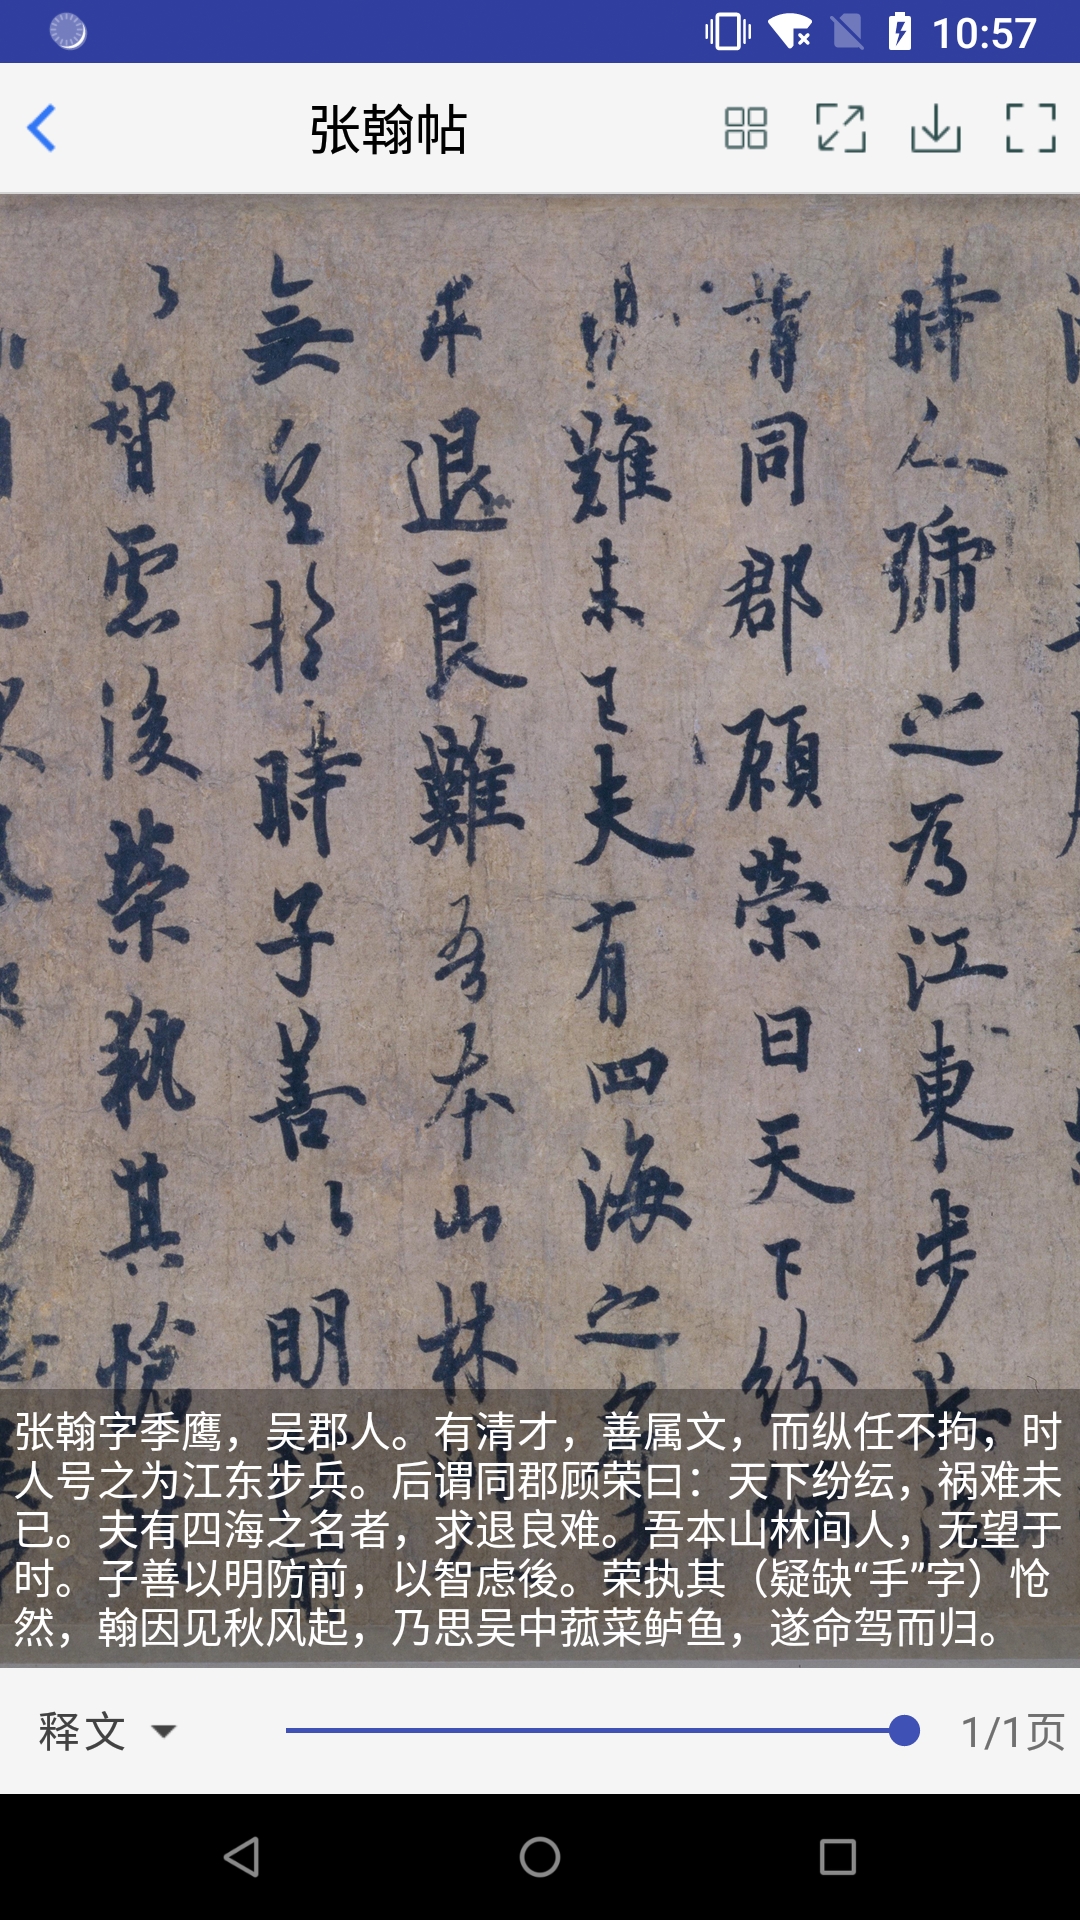 10:57
张翰帖
時人號之為江東步兵後
謂同郡顧榮曰天下紛
難未已夫有四海之名
求退良難吾本山林
無望於時子善以明
智慮後榮執其愴
张翰字季鹰，吴郡人。有清才，善属文，而纵任不拘，时
人号之为江东步兵。后谓同郡顾荣曰：天下纷纭，祸难未
已。夫有四海之名者，求退良难。吾本山林间人，无望于
时。子善以明防前，以智虑後。荣执其（疑缺“手”字）怆
然，翰因见秋风起，乃思吴中菰菜鲈鱼，遂命驾而归。
释文
1/1页